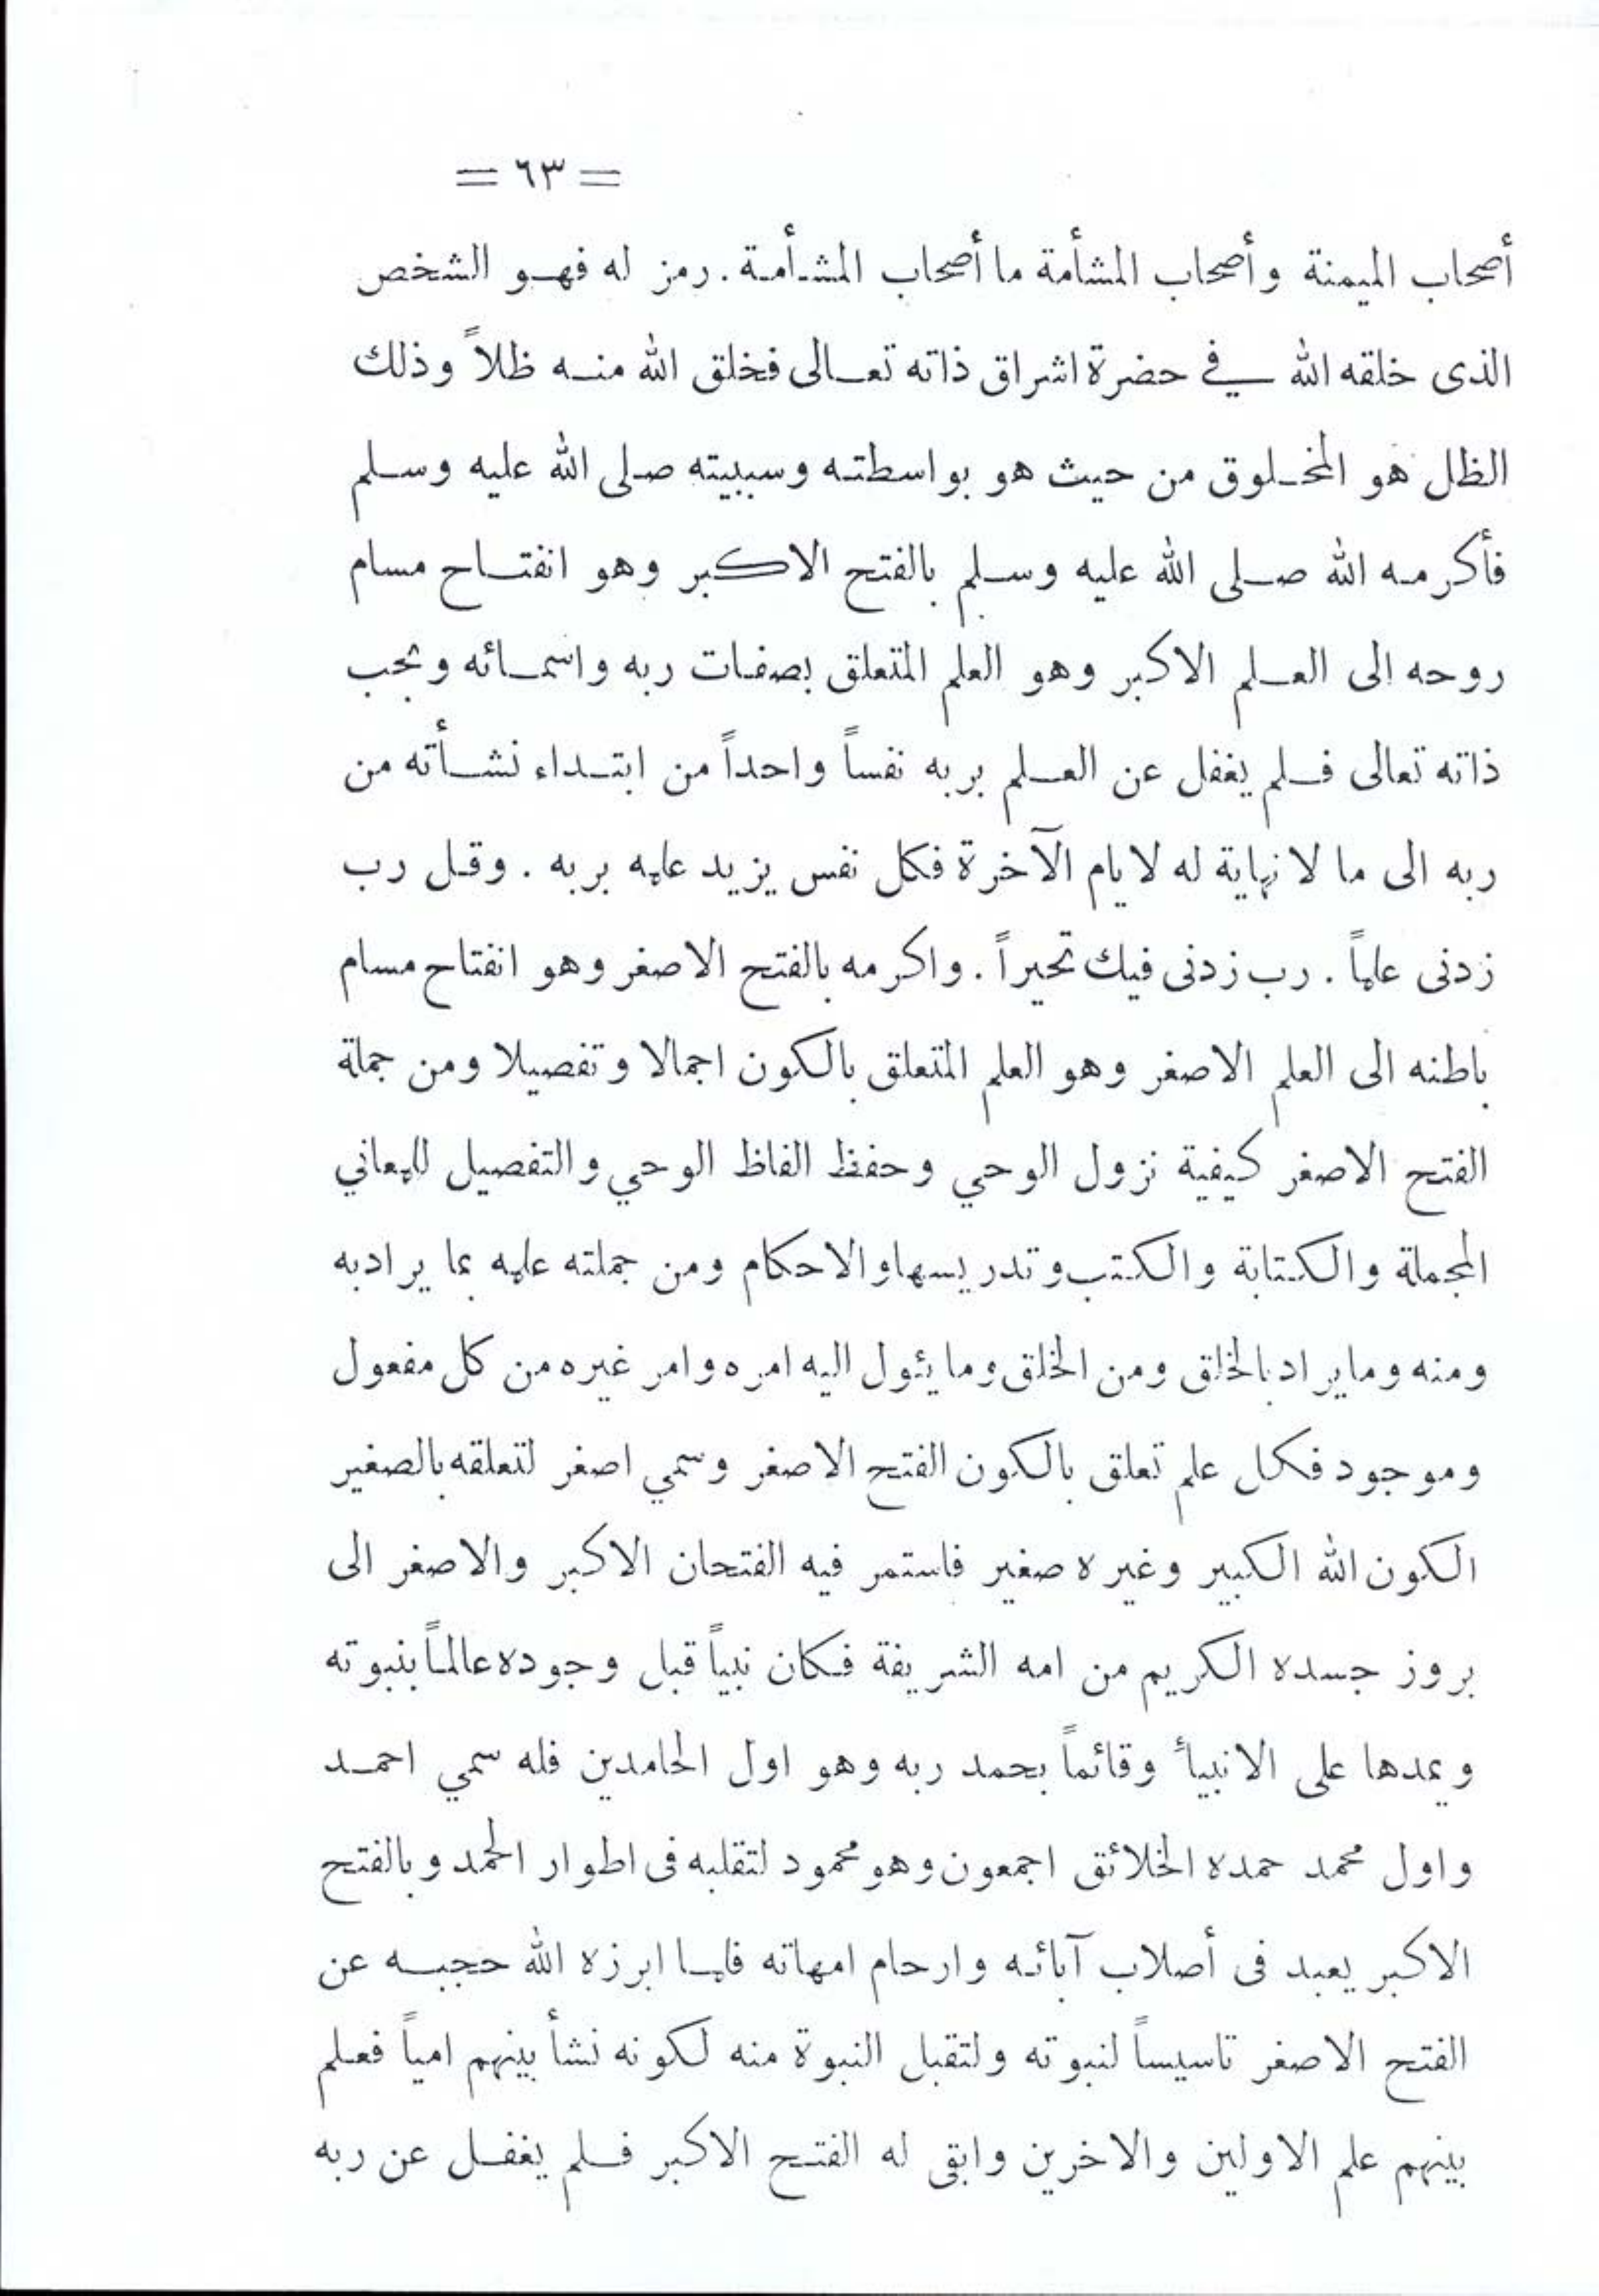 = ٦٣ =
أصحاب الميمنة وأصحاب المشأمة ما أصحاب المشأمة . رمز له فهو الشخص
الذى خلقه الله في حضرة اشراق ذاته تعالى فخلق الله منه ظلاً وذلك
الظل هو المخلوق من حيث هو بواسطته وسببيته صلى الله عليه وسلم
فأكرمه الله صلى الله عليه وسلم بالفتح الاكبر وهو انفتاح مسام
روحه الى العلم الاكبر وهو العلم المتعلق بصفات ربه واسمائه وبحجب
ذاته تعالى فلم يغفل عن العلم بربه نفساً واحداً من ابتداء نشأته من
ربه الى ما لا نهاية له لايام الآخرة فكل نفس يزيد علمه بربه . وقل رب
زدنى علماً . رب زدنى فيك تحيراً . واكرمه بالفتح الاصغر وهو انفتاح مسام
باطنه الى العلم الاصغر وهو العلم المتعلق بالكون اجمالا وتفصيلا ومن جملة
الفتح الاصغر كيفية نزول الوحي وحفظ الفاظ الوحي والتفصيل للمعاني
المجملة والكتابة والكتب وتدريسها والاحكام ومن جملته علمه بما يراد به
ومنه وما يراد بالخلق ومن الخلق وما يئول اليه امره وامر غيره من كل مفعول
وموجود فكل علم تعلق بالكون الفتح الاصغر وسمي اصغر لتعلقه بالصغير
الكون الله الكبير وغيره صغير فاستمر فيه الفتحان الاكبر والاصغر الى
بروز جسده الكريم من امه الشريفة فكان نبياً قبل وجوده عالماً بنبوته
ويمدها على الانبيأ وقائماً بحمد ربه وهو اول الحامدين فله سمي احمد
واول محمد حمده الخلائق اجمعون وهو محمود لتقلبه فى اطوار الحمد وبالفتح
الاكبر يعبد فى أصلاب آبائه وارحام امهاته فلما ابرزه الله حجبه عن
الفتح الاصغر تاسيساً لنبوته ولتقبل النبوة منه لكونه نشأ بينهم امياً فعلم
بينهم علم الاولين والاخرين وابقى له الفتح الاكبر فلم يغفل عن ربه